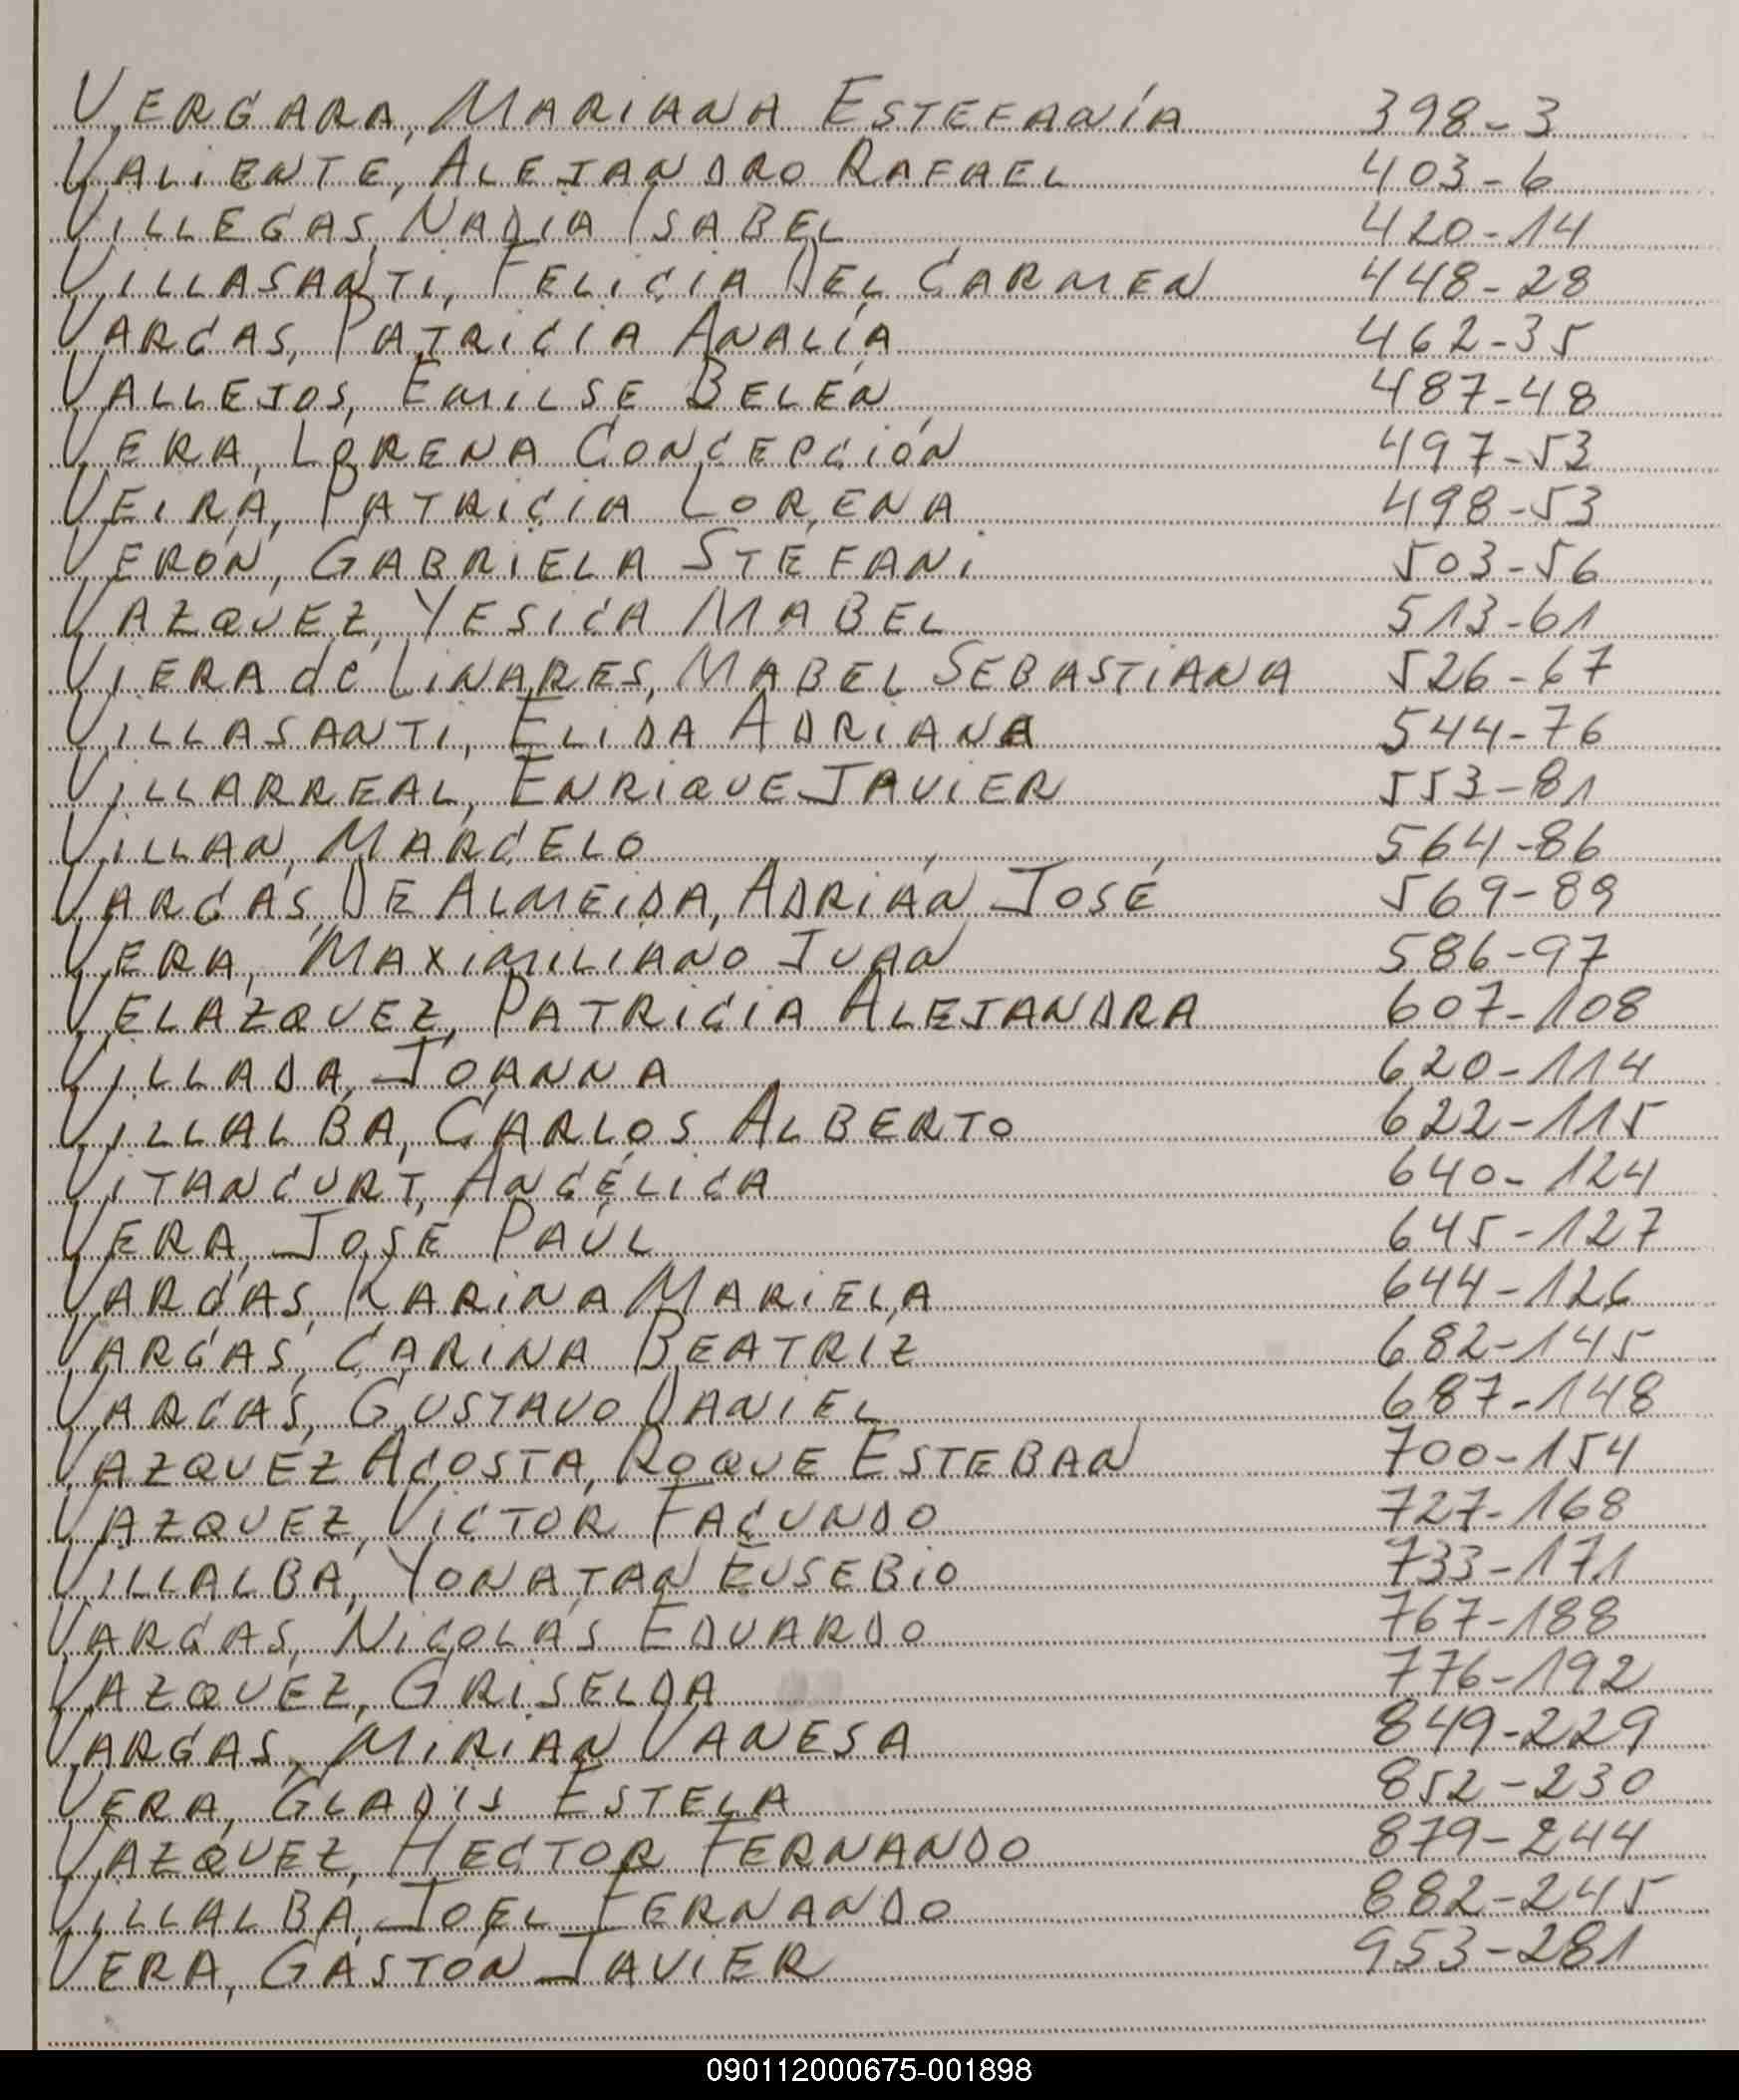 VERGARA, MARIANA ESTEFANÍA 398-3
VALIENTE, ALEJANDRO RAFAEL 403-6
VILLEGAS, NADIA ISABEL 420-14
VILLASANTI, FELICIA DEL CARMEN 448-28
VARGAS, PATRICIA ANALÍA 462-35
VALLEJOS, EMILSE BELÉN 487-48
VERA, LORENA CONCEPCIÓN 497-53
VEIRA, PATRICIA LORENA 498-53
VERÓN, GABRIELA STEFANI 503-56
VAZQUEZ, YESICA MABEL 513-61
VIERA de LINARES, MABEL SEBASTIANA 526-67
VILLASANTI, ELIDA ADRIANA 544-76
VILLARREAL, ENRIQUE JAVIER 553-81
VILLAN, MARCELO 564-86
VARGAS, DE ALMEIDA, ADRIÁN JOSÉ 569-89
VERA, MAXIMILIANO JUAN 586-97
VELAZQUEZ, PATRICIA ALEJANDRA 607-108
VILLADA, JOANNA 620-114
VILLALBA, CARLOS ALBERTO 622-115
VITANCURT, ANGÉLICA 640-124
VERA, JOSÉ PAÚL 645-127
VARGAS, KARINA MARIELA 644-126
VARGAS, CARINA BEATRIZ 682-145
VARGAS, GUSTAVO DANIEL 687-148
VAZQUEZ ACOSTA, ROQUE ESTEBAN 700-154
VAZQUEZ, VICTOR FACUNDO 727-168
VILLALBA, YONATAN EUSEBIO 733-171
VARGAS, NICOLÁS EDUARDO 767-188
VAZQUEZ, GRISELDA 776-192
VARGAS, MIRIAN VANESA 849-229
VERA, GLADIS ESTELA 852-230
VAZQUEZ, HECTOR FERNANDO 879-244
VILLALBA, JOEL FERNANDO 882-245
VERA, GASTÓN JAVIER 953-281
090112000675-001898